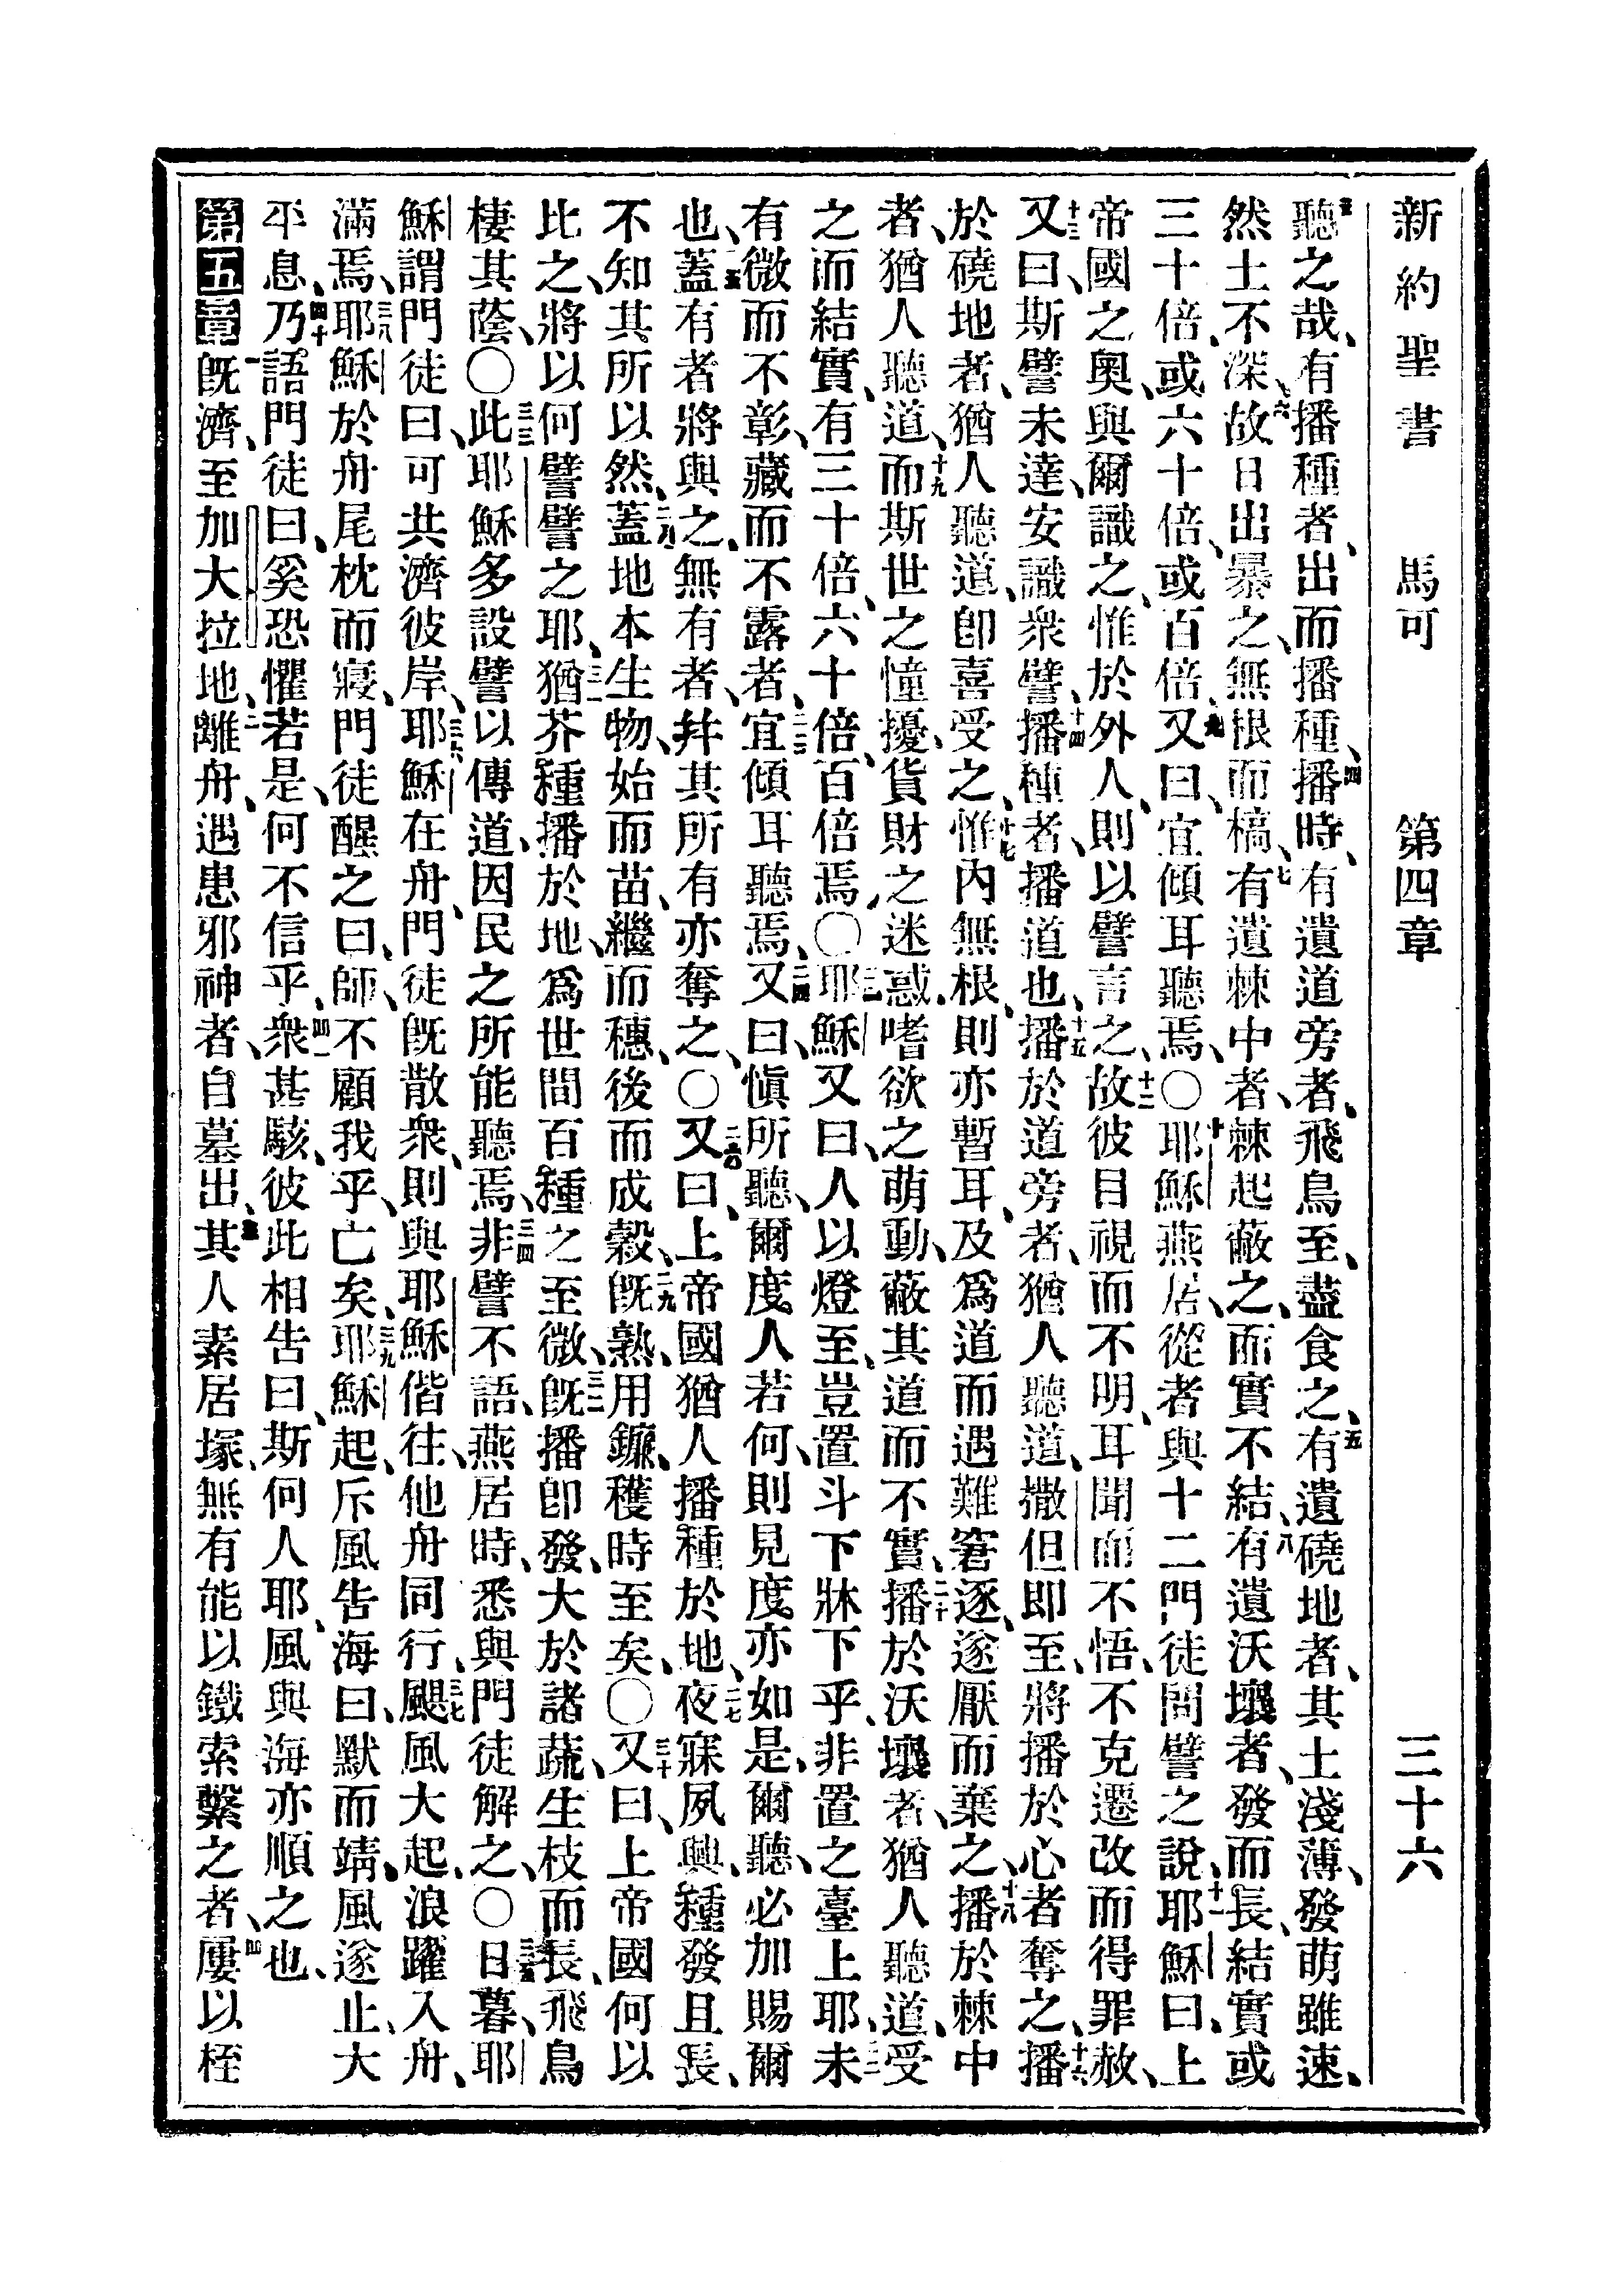 新約聖書 馬可 第四章 三十六
三聽之哉、有播種者、出而播種、四播時、有遺道旁者、飛鳥至、盡食之、五有遺磽地者、其土淺薄、發萌雖速、
然土不深、六故日出暴之、無根而槁、七有遺棘中者、棘起蔽之、而實不結、八有遺沃壤者、發而長、結實或
三十倍、或六十倍、或百倍、九又曰、宜傾耳聽焉、〇十耶穌燕居、從者與十二門徒問譬之說、十一耶穌曰、上
帝國之奧、與爾識之、惟於外人、則以譬言之、十二故彼目視而不明、耳聞而不悟、不克遷改而得罪赦、
十三又曰、斯譬未達、安識衆譬、十四播種者、播道也、十五播於道旁者、猶人聽道、撒但即至、將播於心者奪之、十六播
於磽地者、猶人聽道、卽喜受之、十七惟內無根、則亦暫耳、及爲道而遇難窘逐、遂厭而棄之、十八播於棘中
者、猶人聽道、十九而斯世之憧擾、貨財之迷惑、嗜欲之萌動、蔽其道而不實、二十播於沃壤者、猶人聽道、受
之而結實、有三十倍、六十倍、百倍焉、〇二一耶穌又曰、人以燈至、豈置斗下牀下乎、非置之臺上耶、二二未
有微而不彰、藏而不露者、二三宜傾耳聽焉、二四又曰、愼所聽、爾度人若何、則見度亦如是、爾聽、必加賜爾
也、二五蓋有者將與之、無有者、幷其所有亦奪之、〇二六又曰、上帝國猶人播種於地、二七夜寐夙興、種發且長、
不知其所以然、二八蓋地本生物、始而苗、繼而穗、後而成穀、二九旣熟、用鐮、穫時至矣、〇三十又曰、上帝國何以
比之、將以何譬譬之耶、三一猶芥種播於地、爲世間百種之至微、三二旣播卽發、大於諸蔬、生枝而長、飛鳥
棲其蔭、〇三三此耶穌多設譬以傳道、因民之所能聽焉、三四非譬不語、燕居時、悉與門徒解之、〇三五日暮、耶
穌謂門徒曰、可共濟彼岸、三六耶穌在舟、門徒旣散衆、則與耶穌偕往、他舟同行、三七颶風大起、浪躍入舟、
滿焉、三八耶穌於舟尾枕而寢、門徒醒之曰、師、不顧我乎、亡矣、三九耶穌起、斥風告海曰、默而靖、風遂止、大
平息、四十乃語門徒曰、奚恐懼若是、何不信乎、四一衆甚駭、彼此相告曰、斯何人耶、風與海亦順之也、
第五章 一旣濟、至加大拉地、二離舟、遇患邪神者、自墓出、三其人素居塚、無有能以鐵索繫之者、四屢以桎